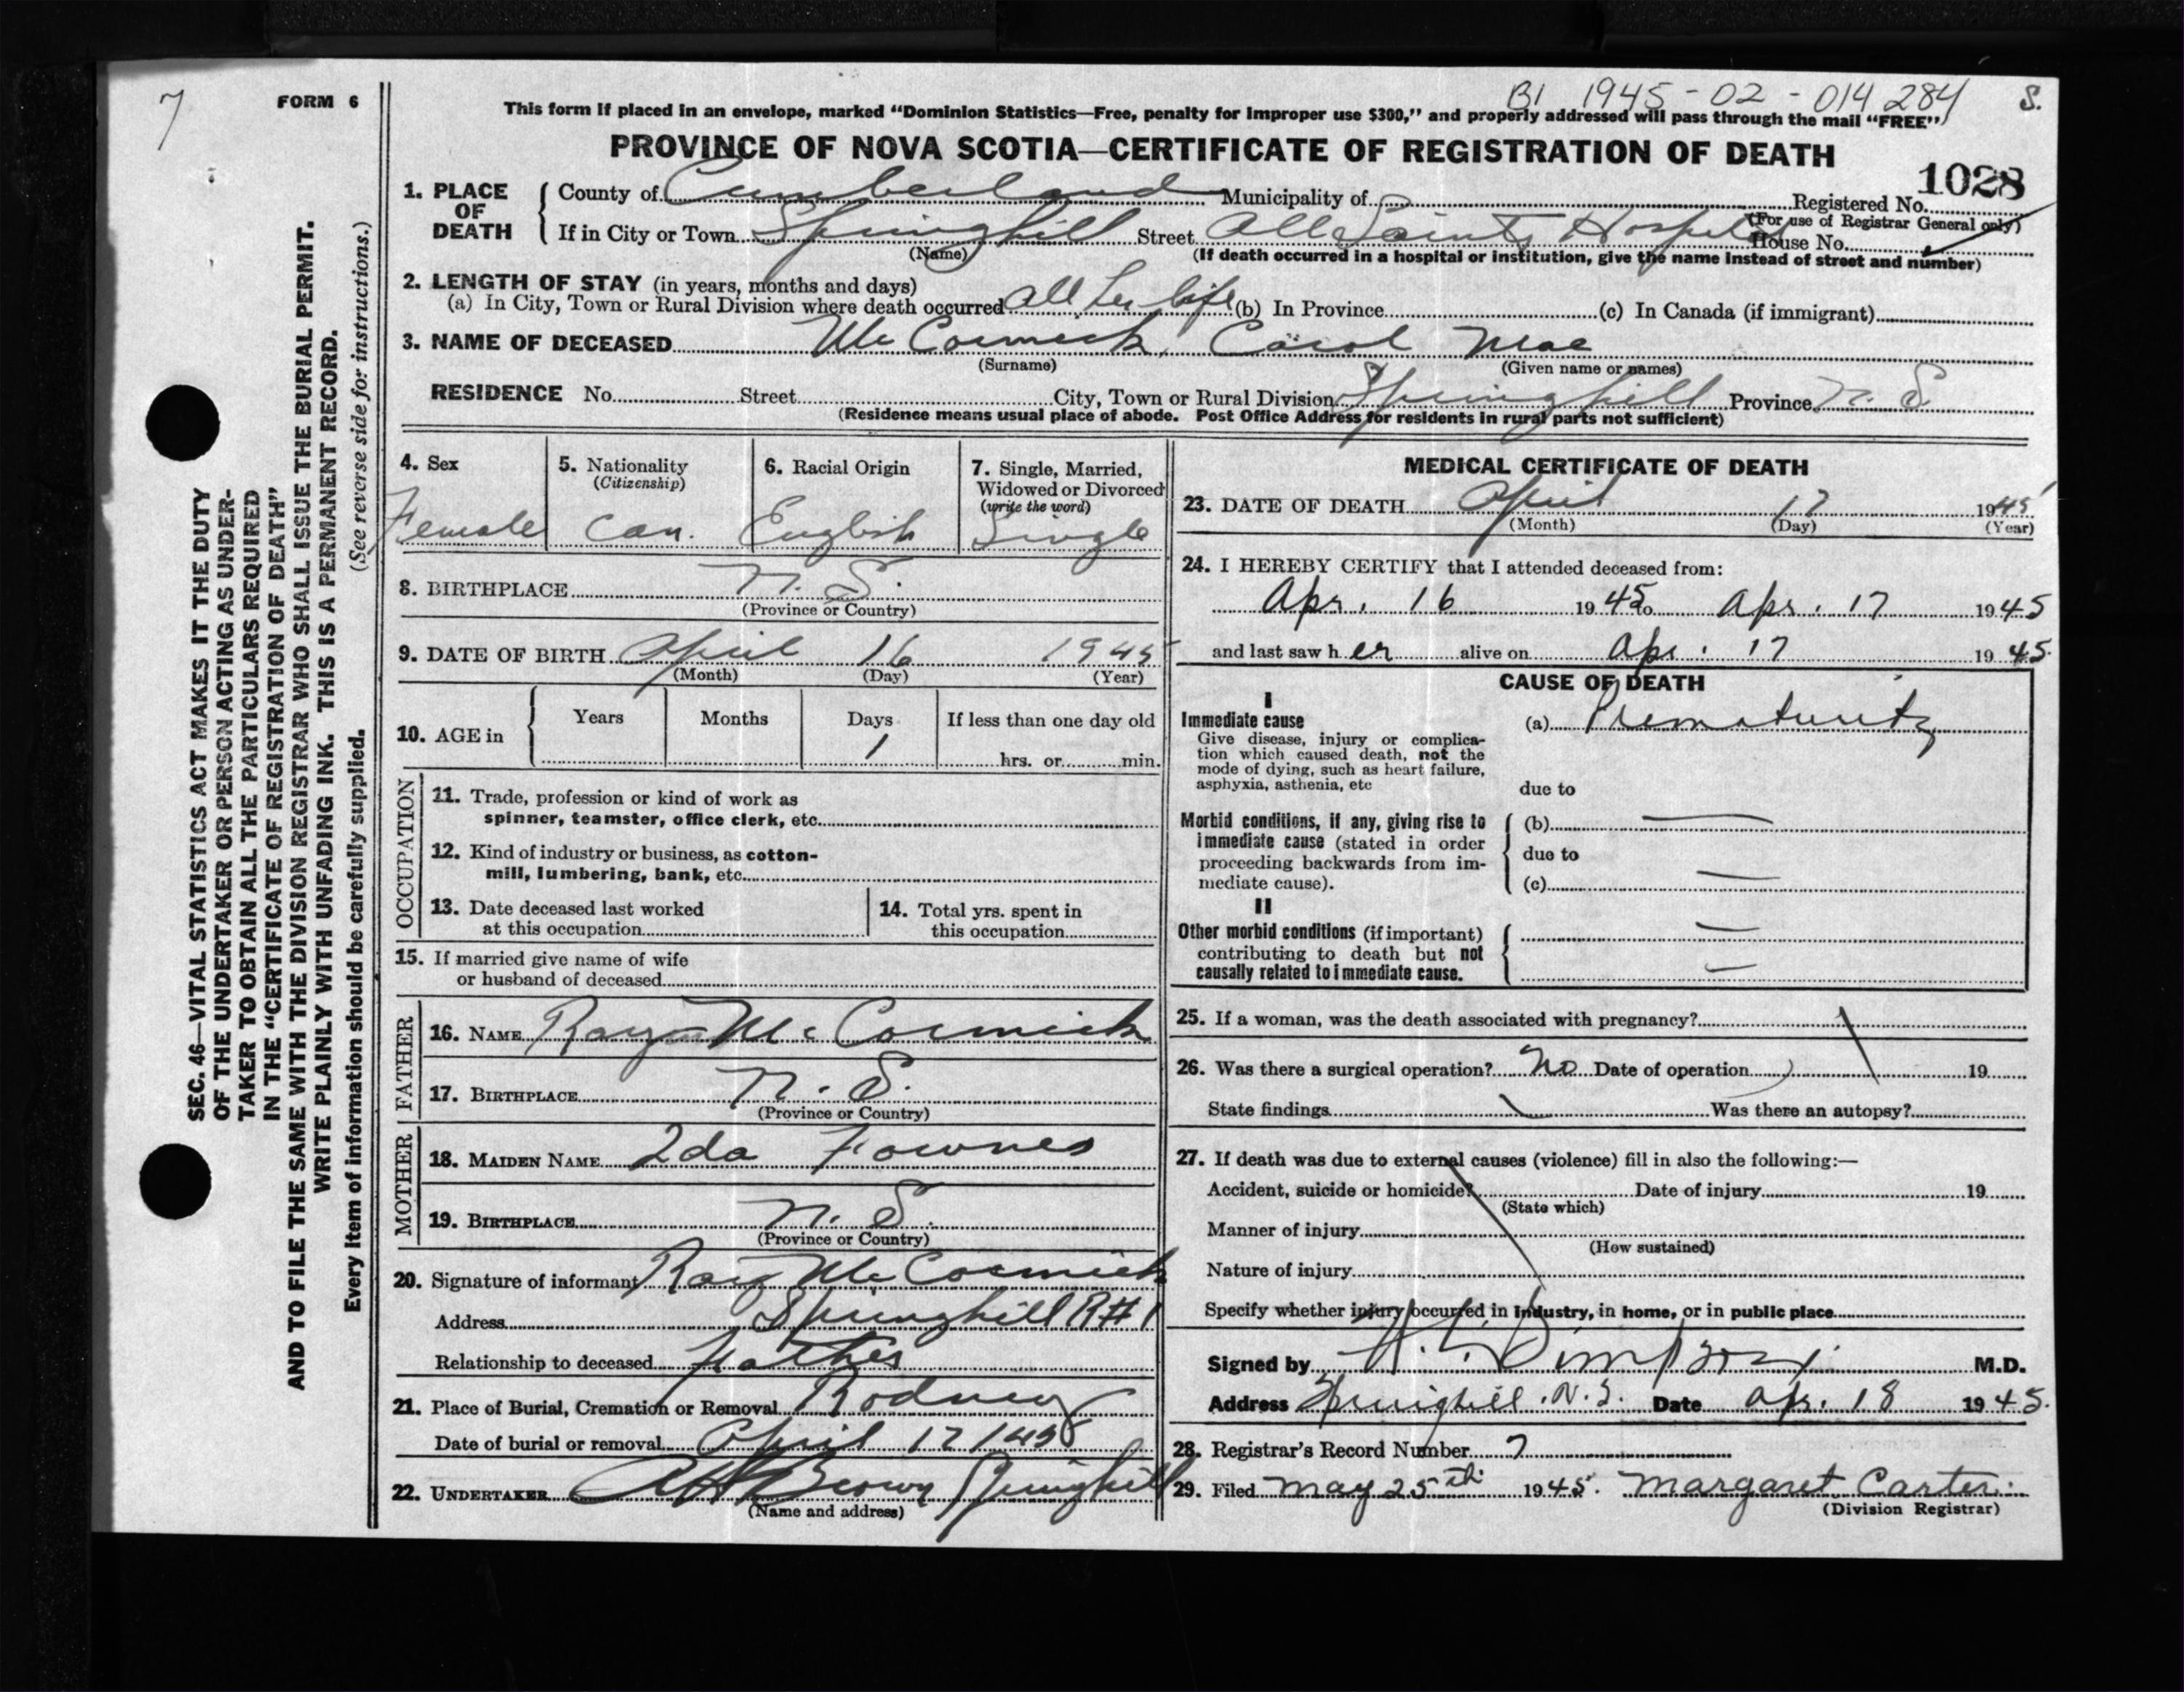 7
FORM 6
BI 1945-02-014284 S.
This form if placed in an envelope, marked “Dominion Statistics—Free, penalty for improper use $300,” and properly addressed will pass through the mail “FREE”
PROVINCE OF NOVA SCOTIA—CERTIFICATE OF REGISTRATION OF DEATH
1028
1. PLACE OF DEATH
County of Cumberland Municipality of Registered No.
(For use of Registrar General only)
If in City or Town Springhill Street All Saints Hospital House No.
(Name) (If death occurred in a hospital or institution, give the name instead of street and number)
2. LENGTH OF STAY (in years, months and days)
(a) In City, Town or Rural Division where death occurred all her life (b) In Province (c) In Canada (if immigrant)
3. NAME OF DECEASED McCormick, Carol Mae
(Surname) (Given name or names)
RESIDENCE No. Street City, Town or Rural Division Springhill Province N. S.
(Residence means usual place of abode. Post Office Address for residents in rural parts not sufficient)
4. Sex
Female
5. Nationality
(Citizenship)
Can.
6. Racial Origin
English
7. Single, Married,
Widowed or Divorced
(write the word)
Single
8. BIRTHPLACE N. S.
(Province or Country)
9. DATE OF BIRTH April 16 1945
(Month) (Day) (Year)
10. AGE in
Years Months Days If less than one day old
1 hrs. or min.
OCCUPATION
11. Trade, profession or kind of work as
spinner, teamster, office clerk, etc.
12. Kind of industry or business, as cotton-
mill, lumbering, bank, etc.
13. Date deceased last worked
at this occupation
14. Total yrs. spent in
this occupation
15. If married give name of wife
or husband of deceased
FATHER
16. NAME Ray McCormick
17. BIRTHPLACE N. S.
(Province or Country)
MOTHER
18. MAIDEN NAME Ida Fownes
19. BIRTHPLACE N. S.
(Province or Country)
20. Signature of informant Ray McCormick
Address Springhill R#1
Relationship to deceased Father
21. Place of Burial, Cremation or Removal Rodney
Date of burial or removal April 17 1945
22. UNDERTAKER Brown Springhill
(Name and address)
MEDICAL CERTIFICATE OF DEATH
23. DATE OF DEATH April 17 1945
(Month) (Day) (Year)
24. I HEREBY CERTIFY that I attended deceased from:
Apr. 16 1945 to Apr. 17 1945
and last saw her alive on Apr. 17 1945.
CAUSE OF DEATH
I
Immediate cause
Give disease, injury or complica-
tion which caused death, not the
mode of dying, such as heart failure,
asphyxia, asthenia, etc
(a) Prematurity
due to
Morbid conditions, if any, giving rise to
immediate cause (stated in order
proceeding backwards from im-
mediate cause).
(b) —
due to
(c) —
II
Other morbid conditions (if important)
contributing to death but not
causally related to immediate cause.
—
—
25. If a woman, was the death associated with pregnancy?
26. Was there a surgical operation? No Date of operation 19
State findings Was there an autopsy?
27. If death was due to external causes (violence) fill in also the following:—
Accident, suicide or homicide? Date of injury 19
(State which)
Manner of injury
(How sustained)
Nature of injury
Specify whether injury occurred in industry, in home, or in public place
Signed by Simpson M.D.
Address Springhill. N.S. Date Apr. 18 1945.
28. Registrar's Record Number 7
29. Filed May 25th 1945. Margaret Carter.
(Division Registrar)
SEC. 46—VITAL STATISTICS ACT MAKES IT THE DUTY
OF THE UNDERTAKER OR PERSON ACTING AS UNDER-
TAKER TO OBTAIN ALL THE PARTICULARS REQUIRED
IN THE “CERTIFICATE OF REGISTRATION OF DEATH”
AND TO FILE THE SAME WITH THE DIVISION REGISTRAR WHO SHALL ISSUE THE BURIAL PERMIT.
WRITE PLAINLY WITH UNFADING INK. THIS IS A PERMANENT RECORD.
Every item of information should be carefully supplied. (See reverse side for instructions.)